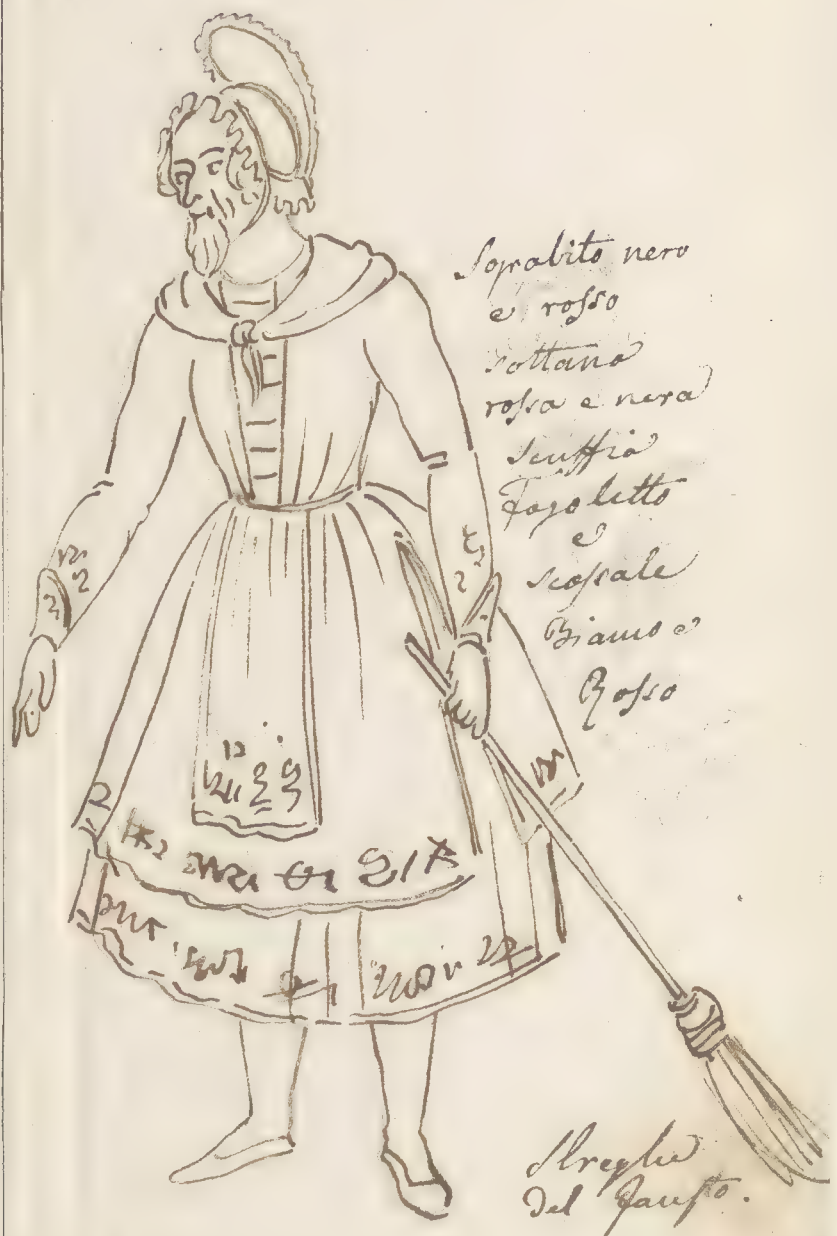 Soprabito nero
e rosso
sottana
rossa e nera
scuffia
Fazoletto
e
scossale
Bianco e
Rosso
Streghe
del Fausto.